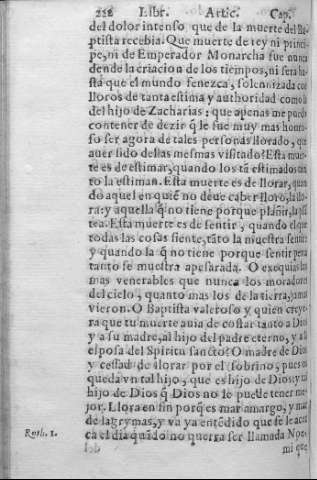 228 Libr. Artic. Cap.
del dolor intenso que de la muerte del Ba-
ptista recebia. Que muerte de rey ni princi-
pe, ni de Emperador Monarcha fue nunca
dende la criacion de los tiempos, ni sera ha-
sta que el mundo fenezca, solennizada con
lloros de tanta estima y authoridad como la
del hijo de Zacharias: que apenas me puedo
contener de dezir q̃ le fue muy mas honro-
so ser agora de tales personas llorado, que
auer sido dellas mesmas visitado? Esta muer-
te es de estimar, quando los tã estimados tan-
to la estiman. Esta muerte es de llorar, quan
do aquel en quiẽ no deue caber lloro, la llo-
ra: y aquella q̃ no tiene porque plañir, la pla
tea. Esta muerte es de sentir, quando el que
todas las cosas siente, tãto la muestra sentir
y quando la q̃ no tiene porque sentir pena
tanto se muestra apesarada. O exequias las
mas venerables que nunca los moradores
del cielo, quanto mas los de la tierra, jamas
vieron. O Baptista valeroso y quien creye-
ra que tu muerte auia de costar tanto a Dios
y a su madre, al hijo del padre eterno, y a la
esposa del Spiritu sancto? O madre de Dios
y cessad de llorar por el sobrino, pues os
queda vn tal hijo, que es hijo de Dios: y tal
hijo de Dios q̃ Dios no le puede tener me-
jor. Llora en fin porq̃ es mar amargo, y mar
de lagrymas, y va ya entẽdido que se le acer
Ruth. 1. ca el dia quãdo no querra ser llamada Noe-
mi que